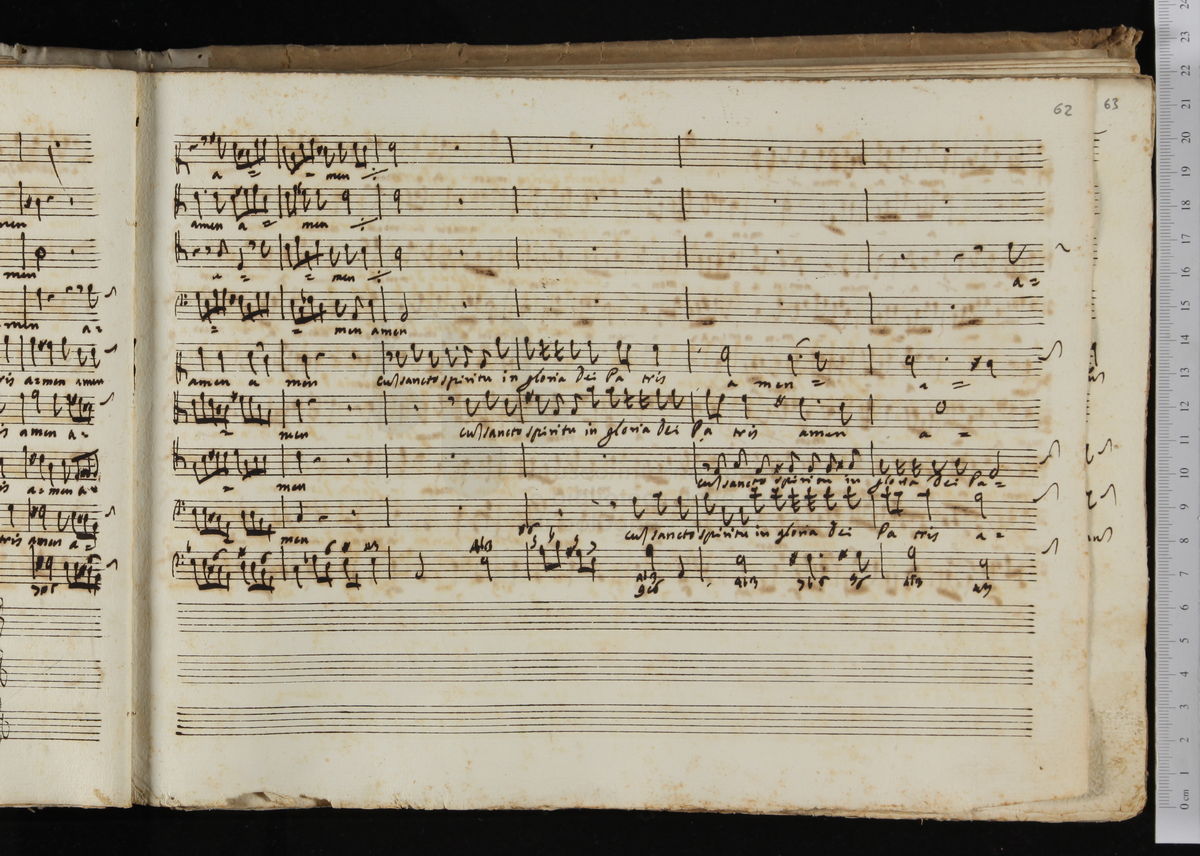 62
63
a = = men
amen a = men
= = men
a =
= = men amen
amen a men cu sancto spiritu in gloria Dei Pa tris a men = a =
= men cu sancto spiritu in gloria Dei Pa tris amen a =
= men cu sancto spiritu in gloria Dei Pa =
= men cu sancto spiritu in gloria Dei Pa tris a =
men
men
men a =
tris a = men amen
amen a =
a = men a =
tris amen a =
24
23
22
21
20
19
18
17
16
15
14
13
12
11
10
9
8
7
6
5
4
3
2
1
0 cm